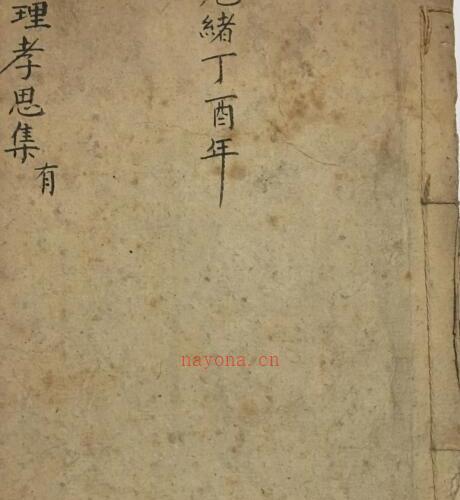 光緒丁酉年
理孝思集
有
nayona.cn